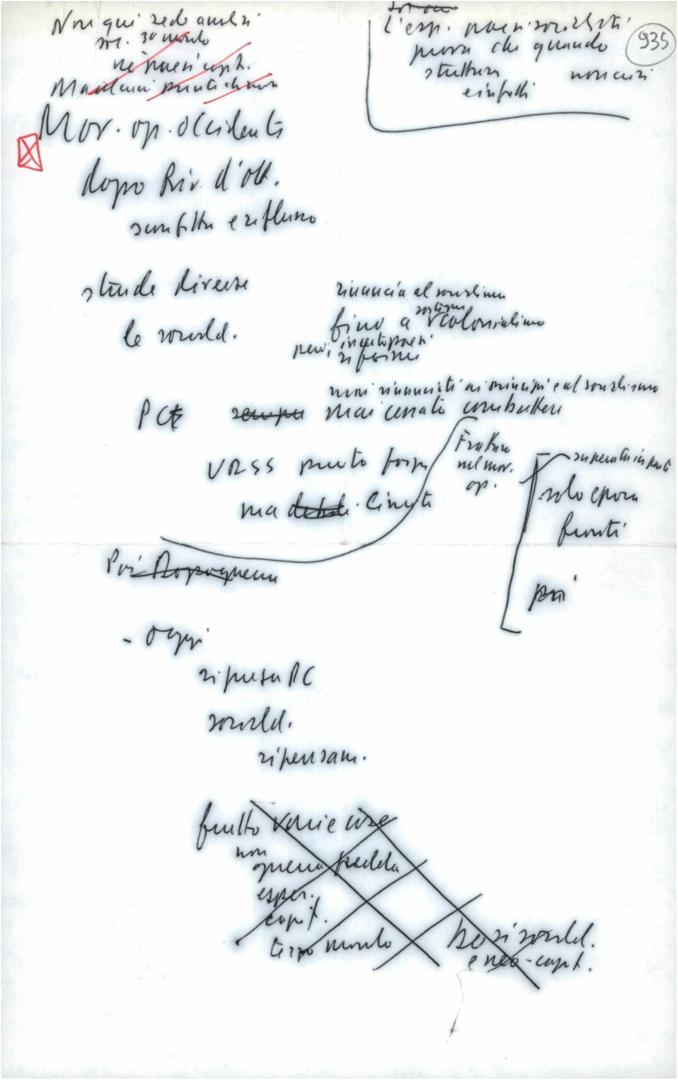 Non qui sede analisi
soc. 3º mondo
né paesi capit.
Ma alcuni punti
L'esp. paesi socialisti
prova che quando
struttura non crisi
935
Mov. op. occidente
dopo Riv. d'Ott.
sconfitta e riflusso
strade diverse
le sociald.
rinuncia al socialismo
fino a sostegno colonialismo
però in certi paesi
riforme
PC
mai rinunciato ai principi e al socialismo
mai cessato combattere
URSS punto forza
ma limiti
Frattura
nel mov.
op.
superata in parte
solo epoca
fronti
poi
Poi Dopoguerra
- oggi
ripresa PC
sociald.
ripensam.
frutto varie cose
non
guerra fredda
esper.
capit.
terzo mondo
sociald.
e neo-capit.